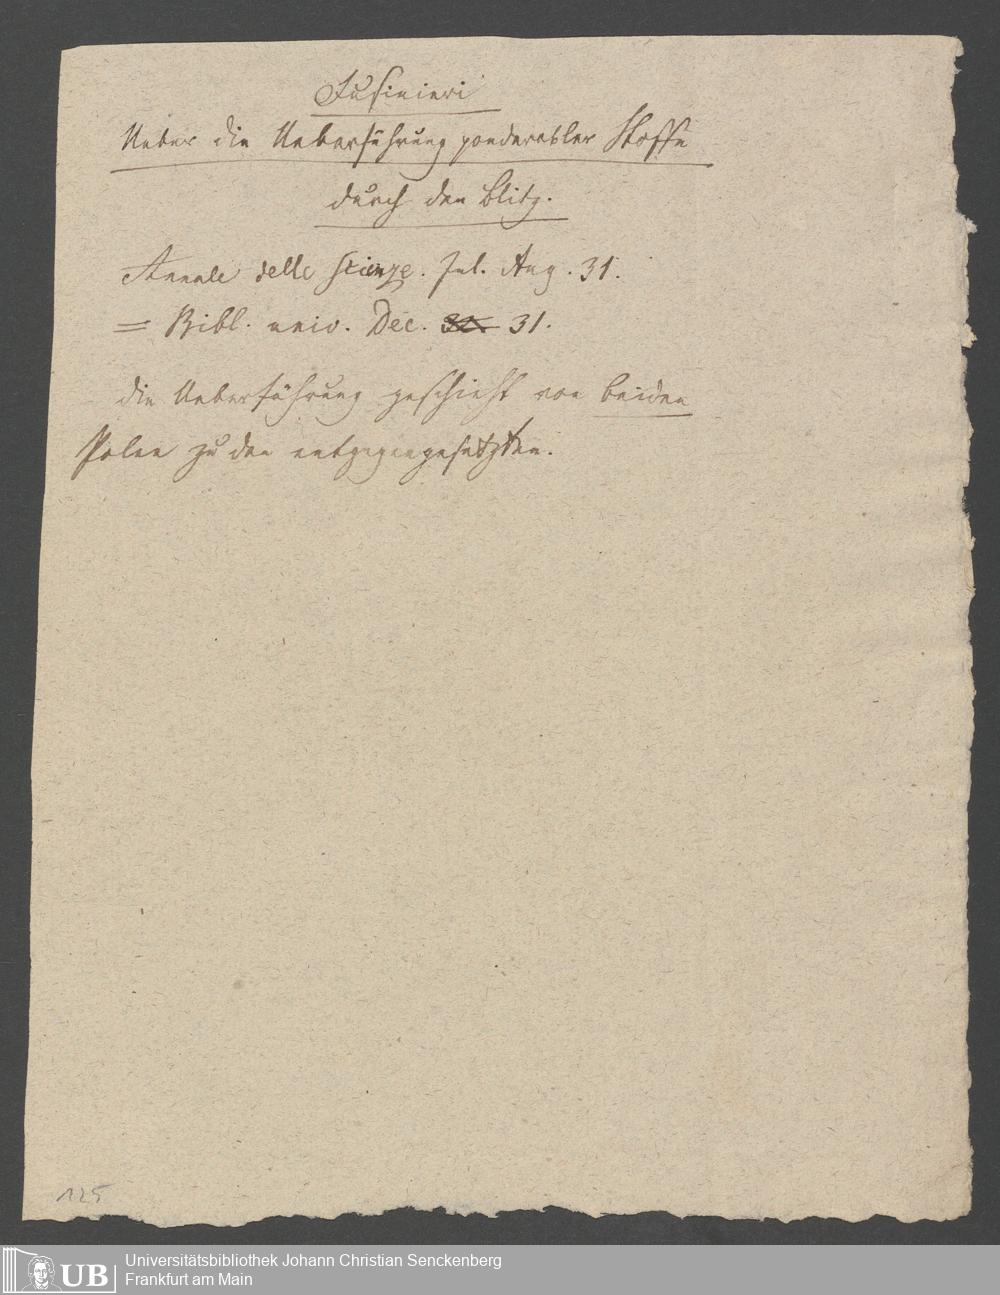 Fusinieri
Ueber die Ueberführung ponderabler Stoffe
durch den Blitz.
Annale delle Scienze. Jul. Aug. 31.
= Bibl. univ. Dec. 31.
die Ueberführung geschieht von beiden
Polen zu den entgegengesetzten.
125
UB
Universitätsbibliothek Johann Christian Senckenberg
Frankfurt am Main